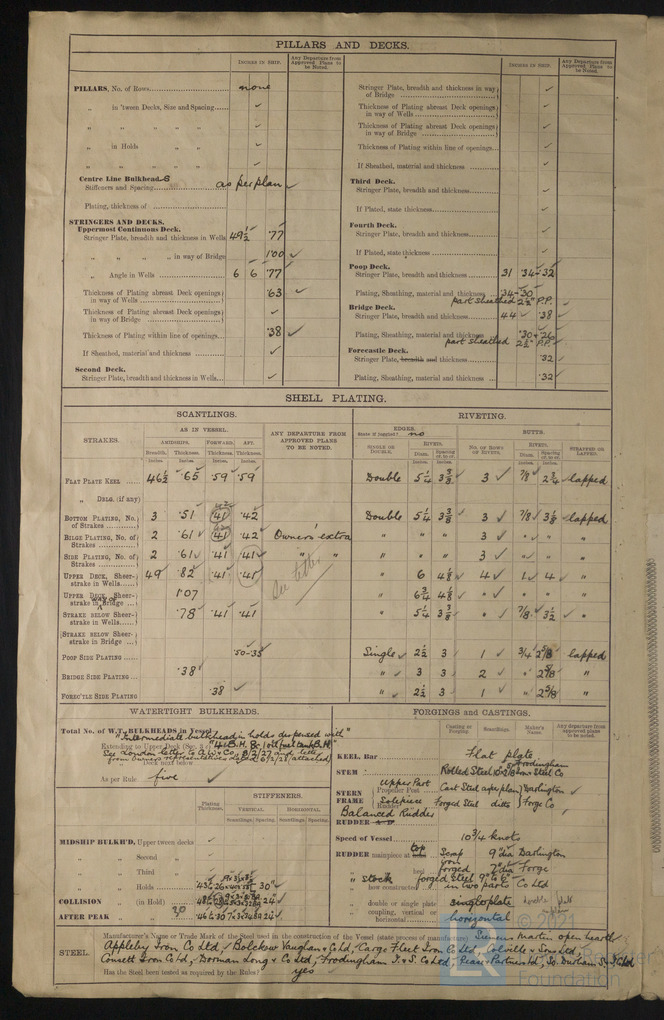 PILLARS AND DECKS.
INCHES IN SHIP.
Any Departure from Approved Plans to be Noted.
PILLARS, No. of Rows none
„ in 'tween Decks, Size and Spacing ✓
„ „ „ „ „ ✓
„ in Holds „ „ ✓
„ „ „ „ ✓
Centre Line Bulkhead s
Stiffeners and Spacing as per plan ✓
Plating, thickness of
STRINGERS AND DECKS.
Uppermost Continuous Deck.
Stringer Plate, breadth and thickness in Wells 49½ .77
„ „ „ „ in way of Bridge 1.00 ✓
„ Angle in Wells 6 6 .77
Thickness of Plating abreast Deck openings in way of Wells .63 ✓
Thickness of Plating abreast Deck openings in way of Bridge ✓
Thickness of Plating within line of openings .38 ✓
If Sheathed, material and thickness ✓
Second Deck.
Stringer Plate, breadth and thickness in Wells ✓
INCHES IN SHIP.
Any Departure from Approved Plans to be Noted.
Stringer Plate, breadth and thickness in way of Bridge ✓
Thickness of Plating abreast Deck openings in way of Wells ✓
Thickness of Plating abreast Deck openings in way of Bridge ✓
Thickness of Plating within line of openings ✓
If Sheathed, material and thickness ✓
Third Deck.
Stringer Plate, breadth and thickness ✓
If Plated, state thickness ✓
Fourth Deck.
Stringer Plate, breadth and thickness ✓
If Plated, state thickness ✓
Poop Deck.
Stringer Plate, breadth and thickness 31 .34-.32
Plating, Sheathing, material and thickness .34-.30
part sheathed 2½" P.P. ✓
Bridge Deck.
Stringer Plate, breadth and thickness 44 ✓ .38 ✓
Plating, Sheathing, material and thickness .30 & .26
part sheathed 2½" P.P. ✓
Forecastle Deck.
Stringer Plate, breadth and thickness .32 ✓
Plating, Sheathing, material and thickness .32 ✓
SHELL PLATING.
SCANTLINGS.
RIVETING.
STRAKES.
AS IN VESSEL.
AMIDSHIPS. FORWARD. AFT.
Breadth. Thickness. Thickness. Thickness.
Inches. Inches. Inches. Inches.
ANY DEPARTURE FROM APPROVED PLANS TO BE NOTED.
EDGES.
State if joggled? no
SINGLE OR DOUBLE.
RIVETS.
Diam. Spacing cr. to cr.
BUTTS.
No. OF ROWS OF RIVETS.
RIVETS.
Diam. Spacing cr. to cr.
STRAPPED OR LAPPED.
FLAT PLATE KEEL 46½ .65 .59 .59 Double 5¼ 3⅜ 3 ✓ 7/8 2¾ lapped
„ DBLG. (if any)
BOTTOM PLATING, No. of Strakes 3 .51 .41 .42 Double 5¼ 3⅜ 3 ✓ 7/8 3⅛ lapped
BILGE PLATING, No. of Strakes 2 .61 .41 .42 Owners' extra „ „ „ 3 ✓ „ „ „
SIDE PLATING, No. of Strakes 2 .61 .41 .41 „ „ „ „ „ 3 ✓ „ „ „
See letter
UPPER DECK, Sheerstrake in Wells 49 .82 .41 .41 „ 6 4⅛ 4 ✓ 1 4 „
UPPER DECK, Sheerstrake in way of Bridge 1.07 „ 6¾ 4⅛ „ „ „ „
STRAKE BELOW Sheerstrake in Wells .78 .41 .41 „ 5¼ 3⅜ „ 7/8 3½ „
STRAKE BELOW Sheerstrake in Bridge
POOP SIDE PLATING .50-.35 Single 2½ 3 1 ✓ 3/4 2⅝ lapped
BRIDGE SIDE PLATING .38 „ 3 3 2 ✓ „ 2⅝ „
FORE'C'TLE SIDE PLATING .38 ✓ „ 2½ 3 1 ✓ „ 2⅝ „
WATERTIGHT BULKHEADS.
Total No. of W.T. BULKHEADS in Vessel
"Intermediate bulkhead in holds dispensed with"
Extending to Upper Deck (Sec. 3
See London letter to A.W. & Co, 8/2/27 and letter
from owners representatives dated 6/2/28 (attached)
Deck next below
As per Rule five ✓
Plating Thickness.
STIFFENERS.
VERTICAL. HORIZONTAL.
Scantlings. Spacing. Scantlings. Spacing.
MIDSHIP BULKH'D, Upper tween decks ✓
„ „ Second „ ✓
„ „ Third „ ✓
„ „ Holds 30" ✓
COLLISION „ (in Hold) 24" ✓
AFTER PEAK „ „ 24" ✓
FORGINGS AND CASTINGS.
Casting or Forging. Scantlings. Maker's Name. Any departure from approved plans to be noted.
KEEL, Bar Flat plate
STEM Rolled Steel Frodingham Iron & Steel Co
STERN FRAME
Propeller Post Upper Part Cast Steel as per plan Darlington ✓
Rudder „ Solepiece Forged Steel ditto Forge Co
Balanced Rudder
RUDDER
Speed of Vessel 10¾ knots
RUDDER mainpiece at top Scrap iron 9" dia Darlington
„ „ heel forged 7" dia Forge
„ stock forged Steel 9" to 6"
„ how constructed in two parts Co Ltd
„ double or single plate single plate
„ coupling, vertical or horizontal horizontal
STEEL.
Manufacturer's Name or Trade Mark of the Steel used in the construction of the Vessel (state process of manufacture) Siemens Martin open hearth
Appleby Iron Co Ltd, Bolckow Vaughan & Co Ld, Cargo Fleet Iron Co Ltd, Colville & Sons Ltd,
Consett Iron Co Ld, Dorman Long & Co Ltd, Frodingham I. & S. Co Ltd, Pease & Partners Ld, So. Durham S. & I. Co Ld
Has the Steel been tested as required by the Rules? yes ✓
© 2021
LR
Foundation